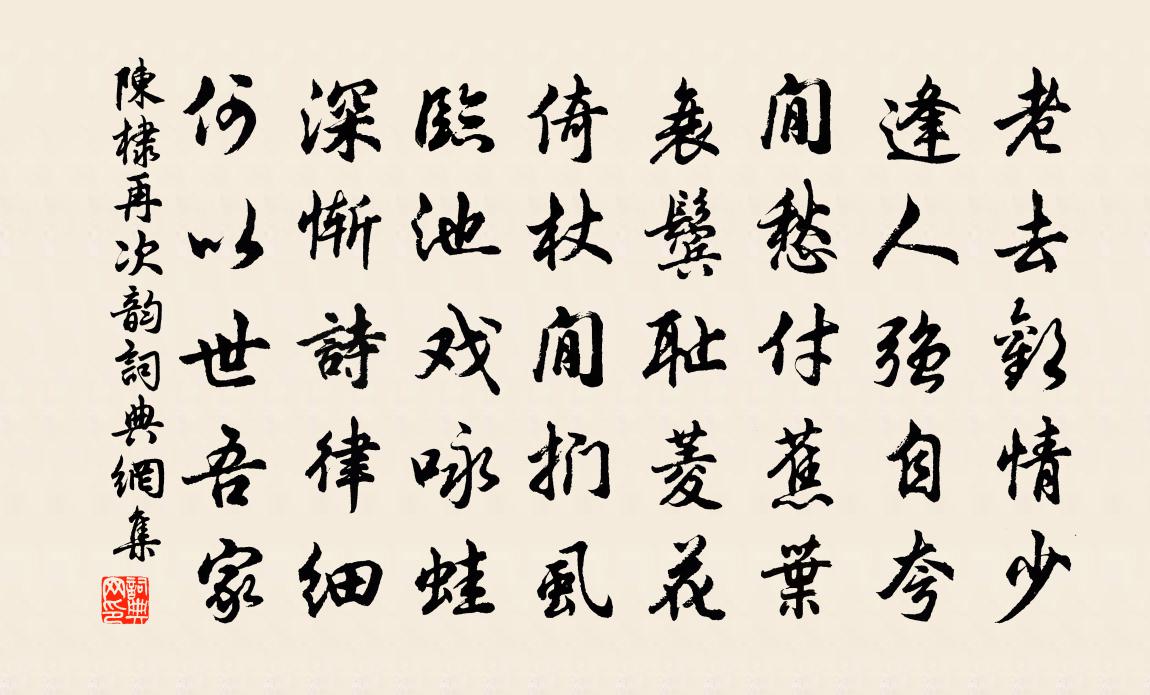 老去歡情少
逢人强自夸
閒愁付蕉葉
衰鬢耻菱花
倚杖閒捫虱
臨池戏咏蛙
深慚詩律細
何以世吾家
陳棣再次韵詞典網集
詞典网印